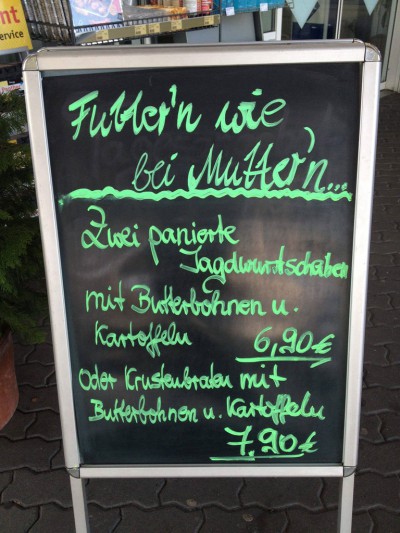 nt
ervice
Futter'n wie
bei Mutter'n...
Zwei panierte
Jagdwurstscheiben
mit Butterbohnen u.
Kartoffeln 6,90€
Oder Krustenbraten mit
Butterbohnen u. Kartoffeln
7,90€